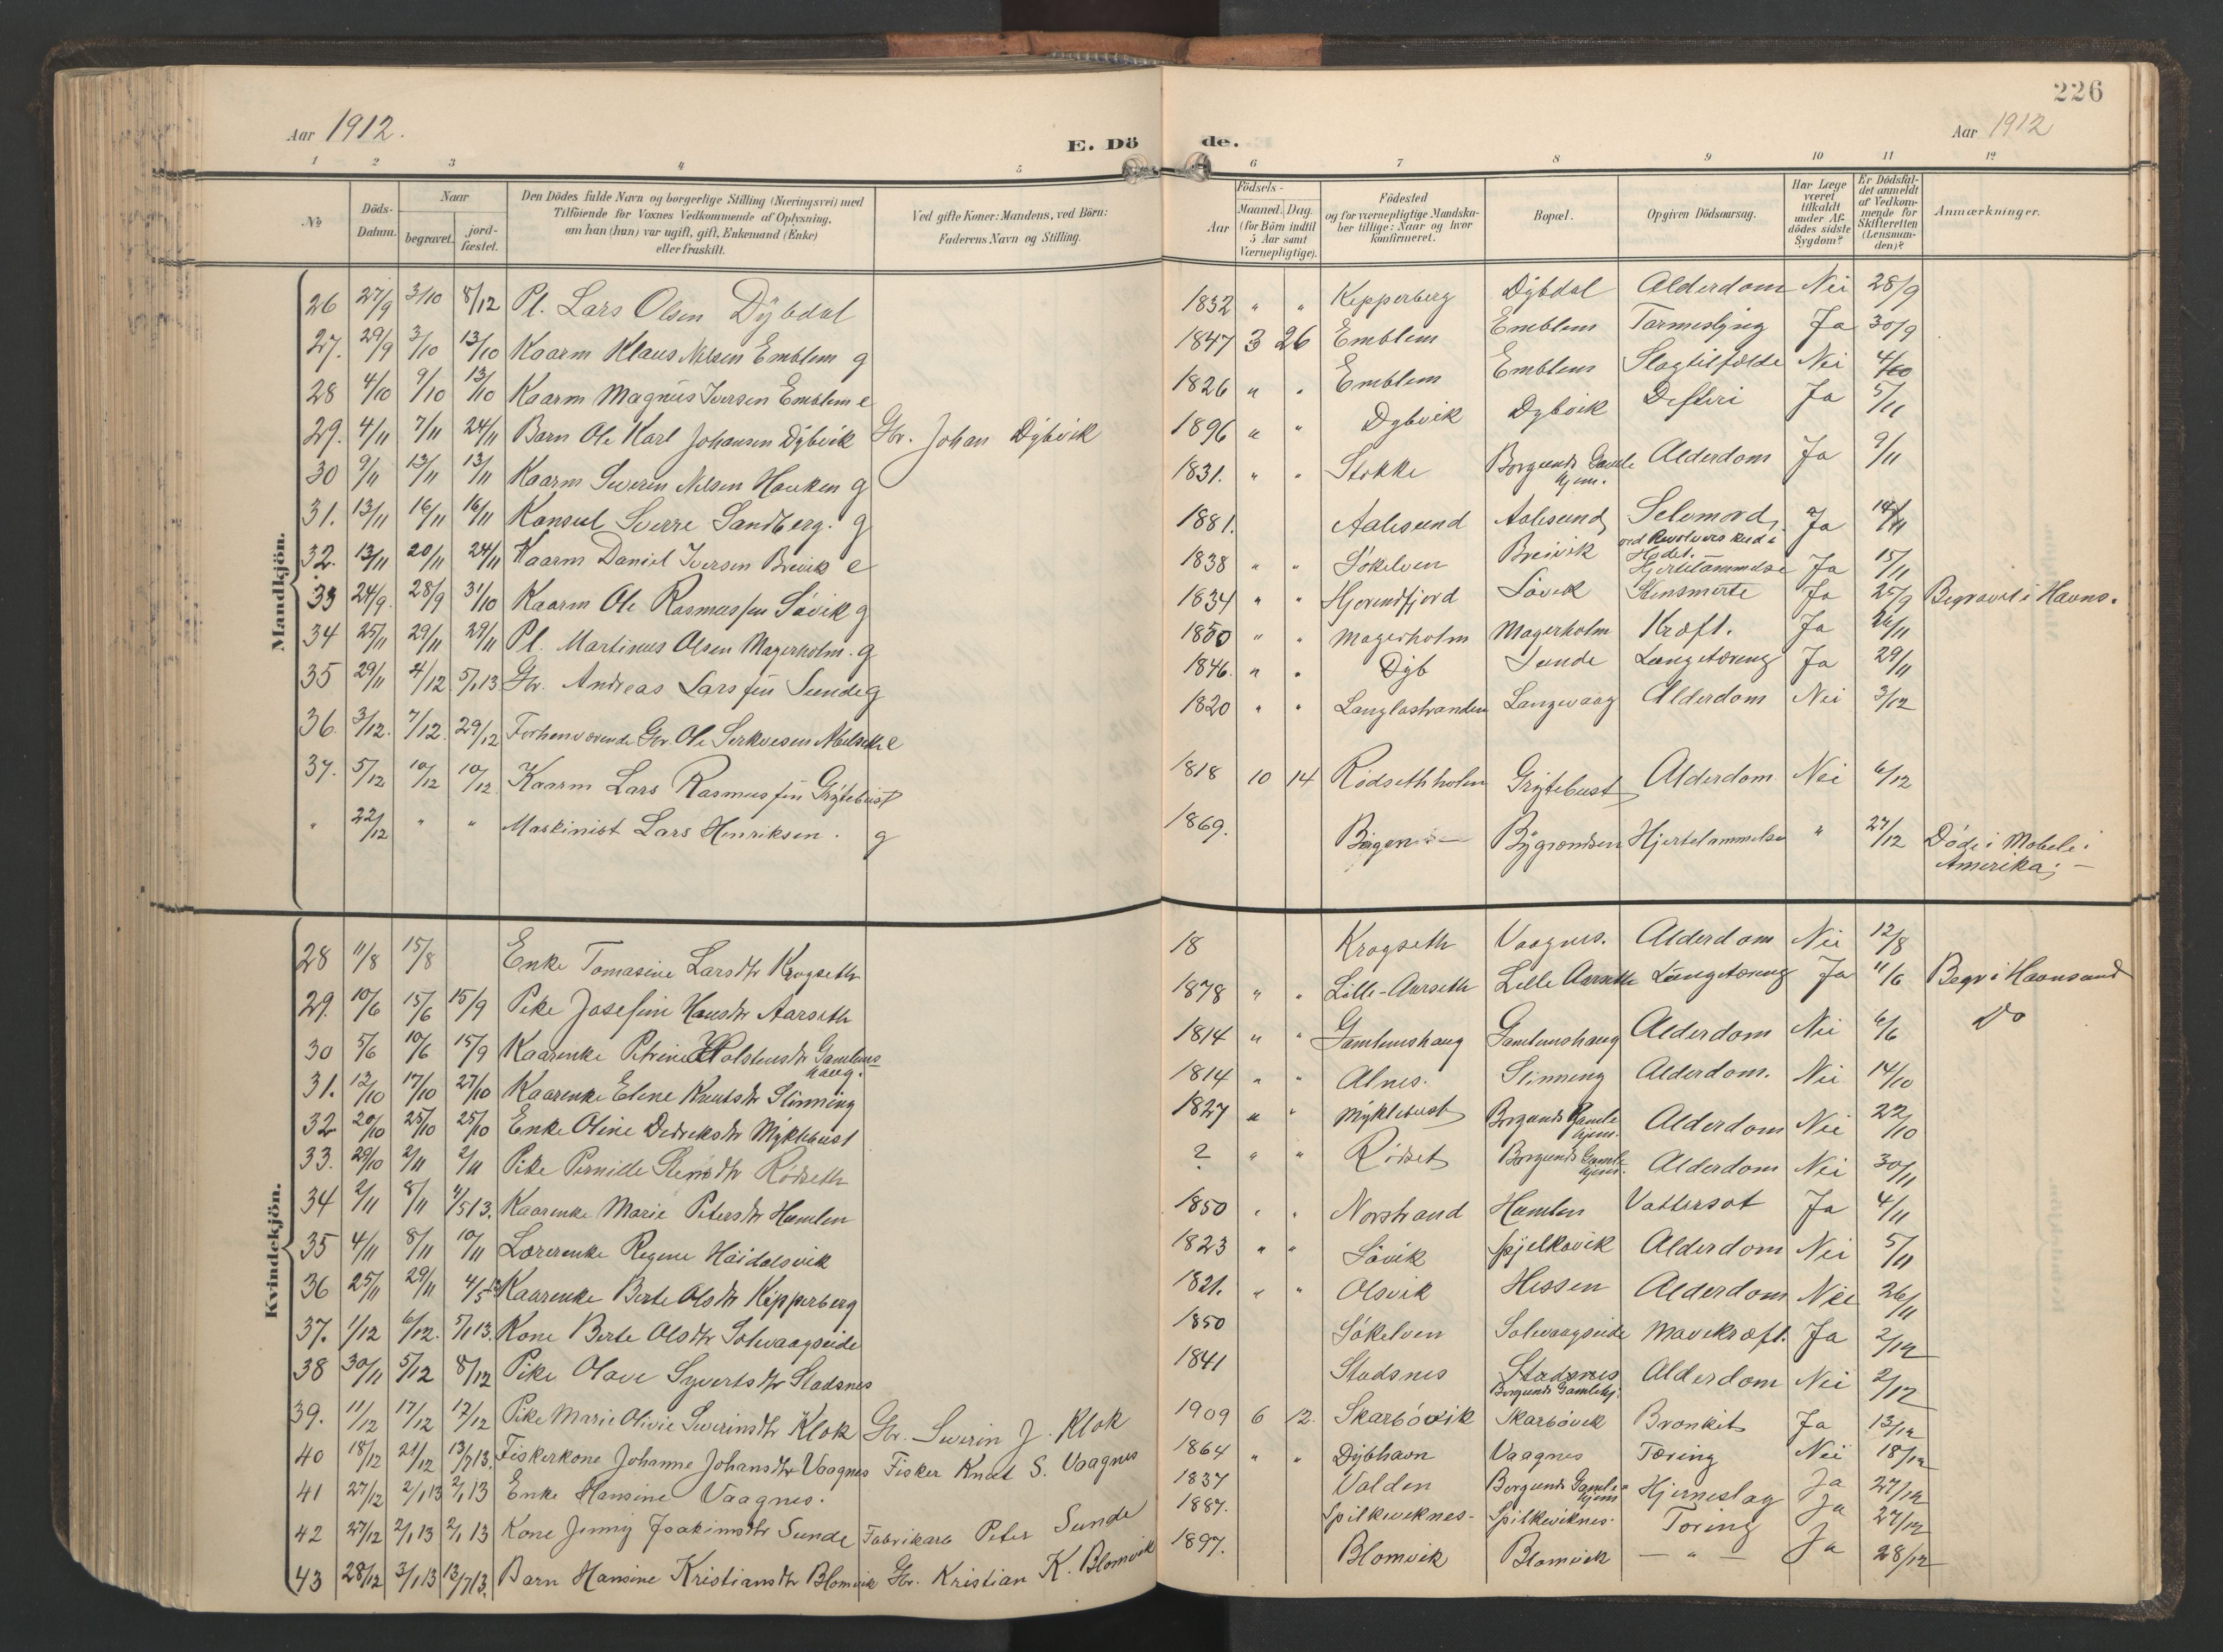 226
Aar 1912.
E. Döde.
Aar 1912
1 2 3 4 5 6 7 8 9 10 11 12
No
Döds-Datum.
Naar
begravet.
jord-fæstet.
Den Dödes fulde Navn og borgerlige Stilling (Næringsvei) med
Tilföiende for Voxnes Vedkommende af Oplysning,
om han (hun) var ugift, gift, Enkemand (Enke)
eller fraskilt.
Ved gifte Koner: Mandens, ved Börn:
Faderens Navn og Stilling.
Födsels-
Aar
Maaned. Dag.
(for Börn indtil
5 Aar samt
Værnepligtige).
Födested
og for værnepligtige Mandska-
ber tillige: Naar og hvor
konfirmeret.
Bopæl.
Opgiven Dödsaarsag.
Har Læge
været
tilkaldt
under Af-
dödes sidste
Sygdom?
Er Dödsfal-
det anmeldt
af Vedkom-
mende for
Skifteretten
(Lensman-
den)?
Anmærkninger.
Mandkjön.
26 27/9 3/10 8/12 Pl. Lars Olsen Dÿbdal 1832 " " Kipperberg Dÿbdal Alderdom Nei 28/9
27. 29/9 3/10 13/10 Kaarm Klaus Nilsen Emblem g 1847 3 26 Emblem Emblem Tarmeslyng Ja 30/9
28 4/10 9/10 13/10 Kaarm Magnus Iversen Emblem e 1826 " " Emblem Emblem Slagtilfælde Nei 4/10
29. 4/11 7/11 24/11 Barn Ole Karl Johansen Dÿbvik Gbr. Johan Dÿbvik 1896 " " Dybvik Dybvik Difteri Ja 5/11
30 9/11 13/11 13/11 Kaarm Severin Nilsen Hauken g 1831. " " Stokke Borgunds Gamle hjem. Alderdom Ja 9/11
31. 13/11 16/11 16/11 Konsul Sverre Sandberg. g 1881. Aalesund Aalesund Selvmord ved Revolverskud i Hodet. Ja 14/11
32. 13/11 20/11 24/11 Kaarm Daniel Iversen Breivik e 1838 " " Sökelven Breivik Hjertelammelse Ja 15/11
33 24/9. 28/9 31/10 Kaarm Ole Rasmussen Sövik g 1834 " " Hjorendfjord Sövik Ja 25/9 Begravet i Havns.
34 25/11 29/11 29/11 Pl. Martinus Olsen Magerholm. g 1850 " " Magerholm Magerholm Kræft. Ja 26/11
35 29/11 4/12 5/1 13 Gbr. Andreas Larssen Sunde g 1846. " " Dÿb Sunde Lungetæring Ja 29/11
36 3/12. 7/12. 29/12 Forhenværende Gbr. Ole e 1820 " " Langlostranden Langevaag Alderdom Nei 3/12
37. 5/12 10/12 10/12 Kaarm Lars Rasmussen Grÿtebust 1818 10 14 Rödsethholm Grÿtebust Alderdom Nei 6/12
" 22/12 " " Maskinist Lars Henriksen. g 1869. Bergen Bÿgrændsen Hjertelammelse " 27/12 Döde i Mobele i Amerika; -
Kvindekjön.
28 11/8 15/8 Enke Tomasine Larsdtr Krogseth 18 Krogseth Vaagnes. Alderdom Nei 12/8
29. 10/6 15/6 15/9 Pike Josefine Hansdtr Aarseth 1878 " " Lille-Aarseth Lille Aarseth Lungetæring Ja 11/6 Begr i Havnsund
30 5/6 10/6 15/9 Kaarenke Petrine Holstensdtr Gamlemshaug. 1814 " " Gamlemshaug Gamlemshaug Alderdom Nei 6/6 Do
31. 12/10 17/10 27/10 Kaarenke Elene Knutsdtr Slinning 1814 " " Alnes. Slinning Alderdom. Nei 14/10
32 20/10 25/10 25/10 Enke Oline Dedriksdtr Myklebust 1827 " " Mÿklebust Borgunds Gamle hjem. Alderdom Nei 22/10
33. 29/10 2/11 2/11 Pike Pernille Stensdtr Rödseth ? " " Rödset Borgunds Gamle hjem. Alderdom Nei 30/11
34 2/11 8/11 4/5 13. Kaarenke Marie Petersdtr Humlen 1850 " " Norstrand Humlen Vattersot Ja 4/11
35 4/11 8/11 10/11 Lærerenke Regine Haidalsvik 1823 " " Sövik Spjelkavik Alderdom Nei 5/11
36 25/11 29/11 4/5 13 Kaarenke Berte Olsdtr Kipperberg 1821. " " Olsvik Hessen Alderdom Nei 26/11
37. 1/12 6/12. 5/1 13. Kone Berte Olsdtr Solevaagseide 1850 Sökelven Solevaagseide Mavekræft. Ja 2/12
38 30/11 5/12 8/12 Pike Olave Syvertsdtr Stadsnes 1841 Stadsnes Stadsnes Borgunds Gamlehj. Alderdom Nei 2/12
39. 11/12 17/12 17/12 Pike Marie Olivie Severinsdtr Klok Gbr. Severin J. Klok 1909 6 12. Skarbövik Skarbövik Bronkit Ja 13/12
40 18/12 21/12 13/7 13. Fiskerkone Johanne Johansdtr Vaagnes Fisker Knut S. Vaagnes 1864 " " Dÿbhavn Vaagnes Tæring Nei 18/12
41 27/12 2/1 13 2/1 13 Enke Hansine Vaagnes. 1837 Valden Borgunds Gamle hjem Hjerneslag Ja 27/12
42 27/12 2/1 13 2/1 13 Kone Jenny Joakimsdtr Sunde Fabrikarb Peter Sunde 1887. Spilkeviknes- Spilkeviknes. Tæring Ja 27/12
43 28/12 3/1 13 13/7 13. Barn Hansine Kristiansdtr Blomvik Gbr. Kristian K. Blomvik 1897. Blomvik Blomvik - " - Ja 28/12